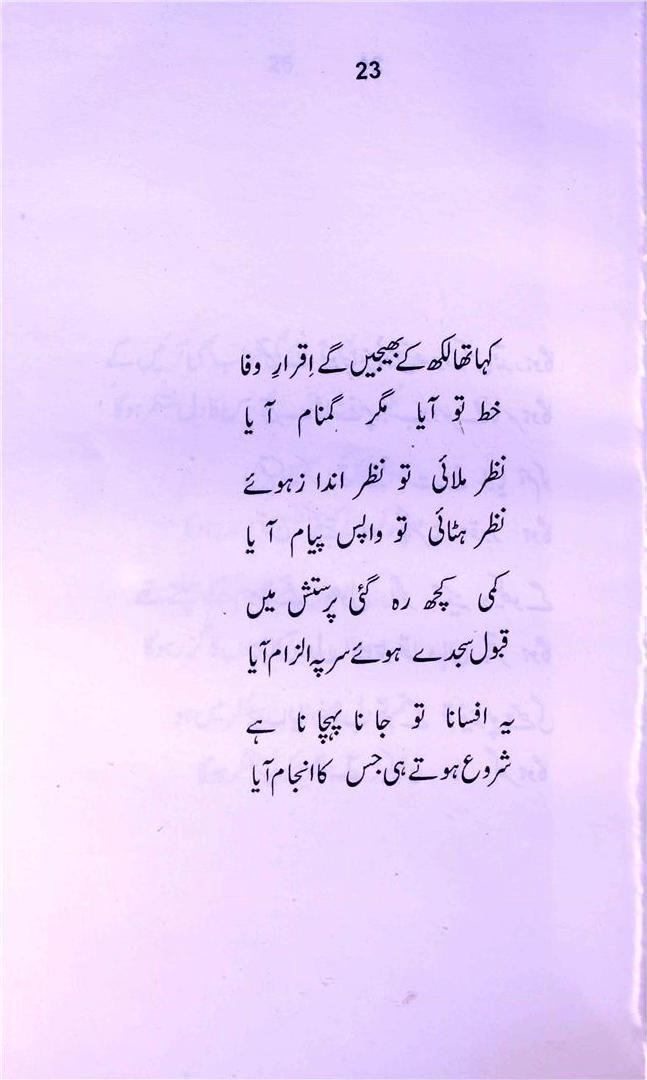 23
کہا تھا لکھ کے بھیجیں گے اِقرارِ وفا
خط تو آیا مگر گمنام آیا
نظر ملائی تو نظر انداز ہوئے
نظر ہٹائی تو واپس پیام آیا
کمی کچھ رہ گئی پرستش میں
قبول سجدے ہوئے سر پہ الزام آیا
یہ افسانا تو جانا پہچانا ہے
شروع ہوتے ہی جس کا انجام آیا